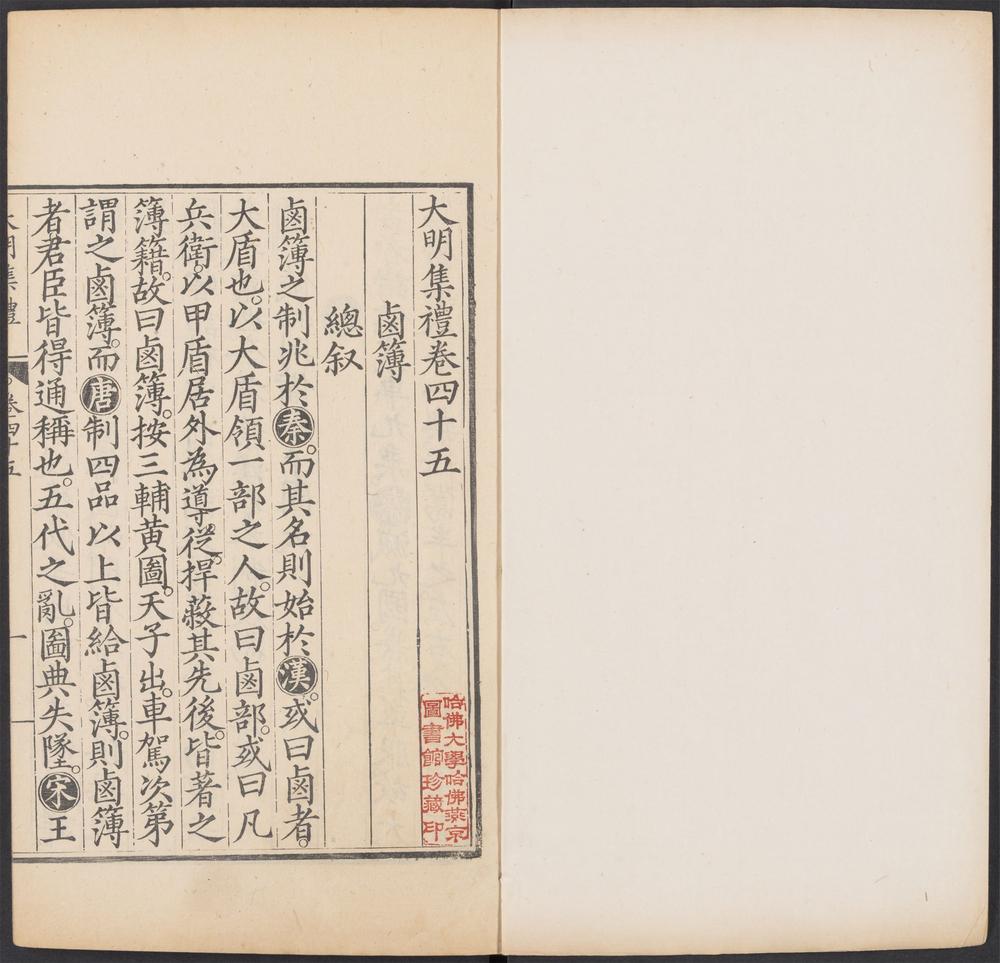 大明集禮卷四十五
鹵簿
總叙
鹵簿之制兆於秦。而其名則始於漢。或曰鹵者。
大盾也。以大盾領一部之人。故曰鹵部。或曰凡
兵衛。以甲盾居外為導從。捍蔽其先後。皆著之
簿籍。故曰鹵簿。按三輔黃圖。天子出。車駕次第
謂之鹵簿。而唐制四品以上皆給鹵簿。則鹵簿
者。君臣皆得通稱也。五代之亂。圖典失墜。宋王
大明集禮 卷四十五 一
哈佛大學哈佛燕京
圖書館珍藏印